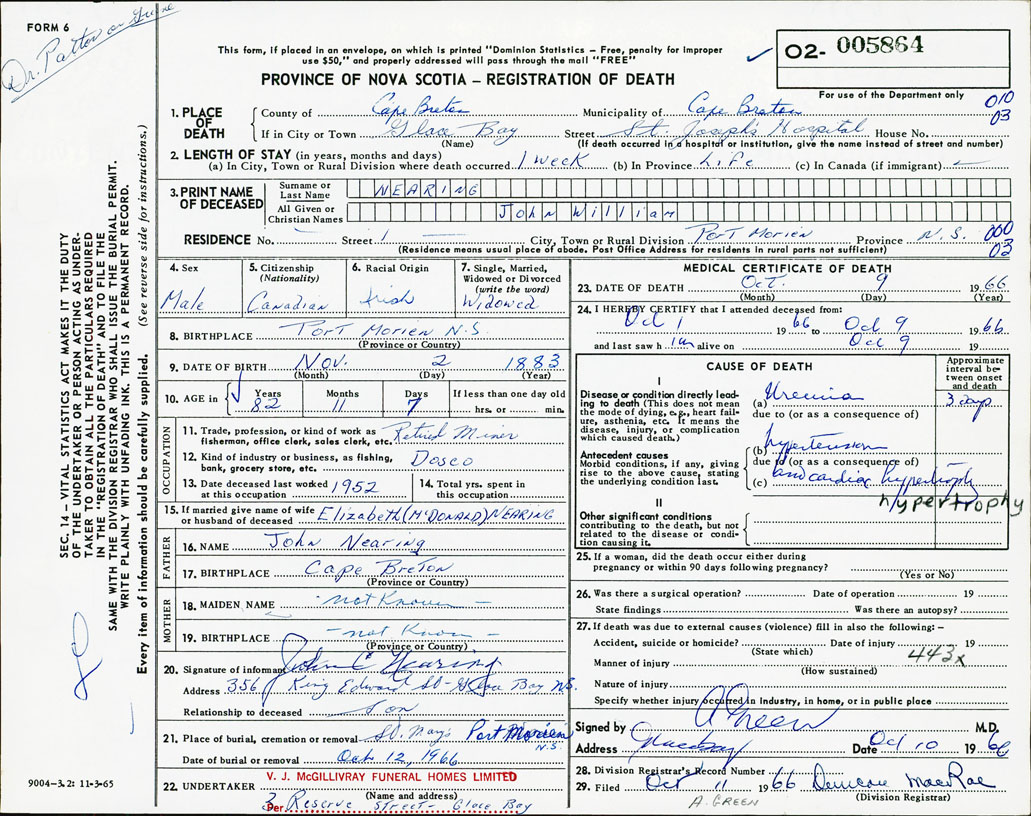 FORM 6
Dr. Patton or Greene
This form, if placed in an envelope, on which is printed "Dominion Statistics – Free, penalty for improper
use $50," and properly addressed will pass through the mail "FREE"
PROVINCE OF NOVA SCOTIA – REGISTRATION OF DEATH
O2- 005864
For use of the Department only
010
03
1. PLACE OF DEATH
County of Cape Breton Municipality of Cape Breton
If in City or Town Glace Bay Street St. Joseph's Hospital House No.
(Name) (If death occurred in a hospital or institution, give the name instead of street and number)
2. LENGTH OF STAY (in years, months and days)
(a) In City, Town or Rural Division where death occurred 1 week (b) In Province Life (c) In Canada (if immigrant) –
3. PRINT NAME OF DECEASED
Surname or Last Name NEARING
All Given or Christian Names John William
RESIDENCE No. – Street 1 – City, Town or Rural Division Port Morien Province N.S.
000
03
(Residence means usual place of abode. Post Office Address for residents in rural parts not sufficient)
4. Sex Male
5. Citizenship (Nationality) Canadian
6. Racial Origin Irish
7. Single, Married, Widowed or Divorced (write the word) Widowed
8. BIRTHPLACE Port Morien N.S.
(Province or Country)
9. DATE OF BIRTH Nov. 2 1883
(Month) (Day) (Year)
10. AGE in Years 82 Months 11 Days 7 If less than one day old hrs. or min.
OCCUPATION
11. Trade, profession, or kind of work as fisherman, office clerk, sales clerk, etc. Retired Miner
12. Kind of industry or business, as fishing, bank, grocery store, etc. Dosco
13. Date deceased last worked at this occupation 1952
14. Total yrs. spent in this occupation
15. If married give name of wife or husband of deceased Elizabeth (McDONALD) NEARING
FATHER
16. NAME John Nearing
17. BIRTHPLACE Cape Breton
(Province or Country)
MOTHER
18. MAIDEN NAME – not Known –
19. BIRTHPLACE – not Known –
(Province or Country)
20. Signature of informant John C Nearing
Address 356 King Edward St - Glace Bay N.S.
Relationship to deceased Son
21. Place of burial, cremation or removal St. Mary's Port Morien N.S.
Date of burial or removal Oct 12, 1966
22. UNDERTAKER V. J. McGILLIVRAY FUNERAL HOMES LIMITED
(Name and address)
Per Reserve Street - Glace Bay
MEDICAL CERTIFICATE OF DEATH
23. DATE OF DEATH Oct. 9 1966
(Month) (Day) (Year)
24. I HEREBY CERTIFY that I attended deceased from:
Oct 1 1966 to Oct 9 1966
and last saw h im alive on Oct 9 19
CAUSE OF DEATH
Approximate interval between onset and death
I
Disease or condition directly leading to death (This does not mean the mode of dying, e.g., heart failure, asthenia, etc. It means the disease, injury, or complication which caused death.)
(a) Uremia 3 days
due to (or as a consequence of)
Antecedent causes
Morbid conditions, if any, giving rise to the above cause, stating the underlying condition last.
(b) hypertension
due to (or as a consequence of)
(c) and cardiac hypertrophy
hypertrophy
II
Other significant conditions
contributing to the death, but not related to the disease or condition causing it.
25. If a woman, did the death occur either during
pregnancy or within 90 days following pregnancy?
(Yes or No)
26. Was there a surgical operation? Date of operation 19
State findings Was there an autopsy?
27. If death was due to external causes (violence) fill in also the following:–
Accident, suicide or homicide? Date of injury 19
(State which) 443x
Manner of injury
(How sustained)
Nature of injury
Specify whether injury occurred in industry, in home, or in public place
Signed by A Green M.D.
Address Glace Bay Date Oct 10 1966
28. Division Registrar's Record Number
29. Filed Oct 11 1966 Duncan MacRae
A. GREEN (Division Registrar)
SEC. 14 – VITAL STATISTICS ACT MAKES IT THE DUTY
OF THE UNDERTAKER OR PERSON ACTING AS UNDER-
TAKER TO OBTAIN ALL THE PARTICULARS REQUIRED
IN THE "REGISTRATION OF DEATH" AND TO FILE THE
SAME WITH THE DIVISION REGISTRAR WHO SHALL ISSUE THE BURIAL PERMIT.
WRITE PLAINLY WITH UNFADING INK. THIS IS A PERMANENT RECORD.
Every item of information should be carefully supplied. (See reverse side for instructions.)
9004–3.2: 11-3-65